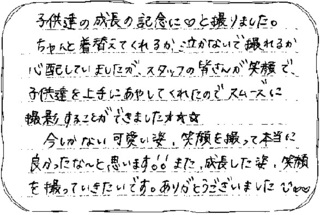 子供達の成長の記念に♡と撮りました。
ちゃんと着替えてくれるか、泣かないで撮れるか
心配していましたが、スタッフの皆さんが笑顔で、
子供達を上手にあやしてくれたのでスムーズに
撮影することができました★☆★
今しかない可愛い姿、笑顔を撮って本当に
良かったな〜と思います!!また、成長した姿、笑顔
を撮っていきたいです。ありがとうございました